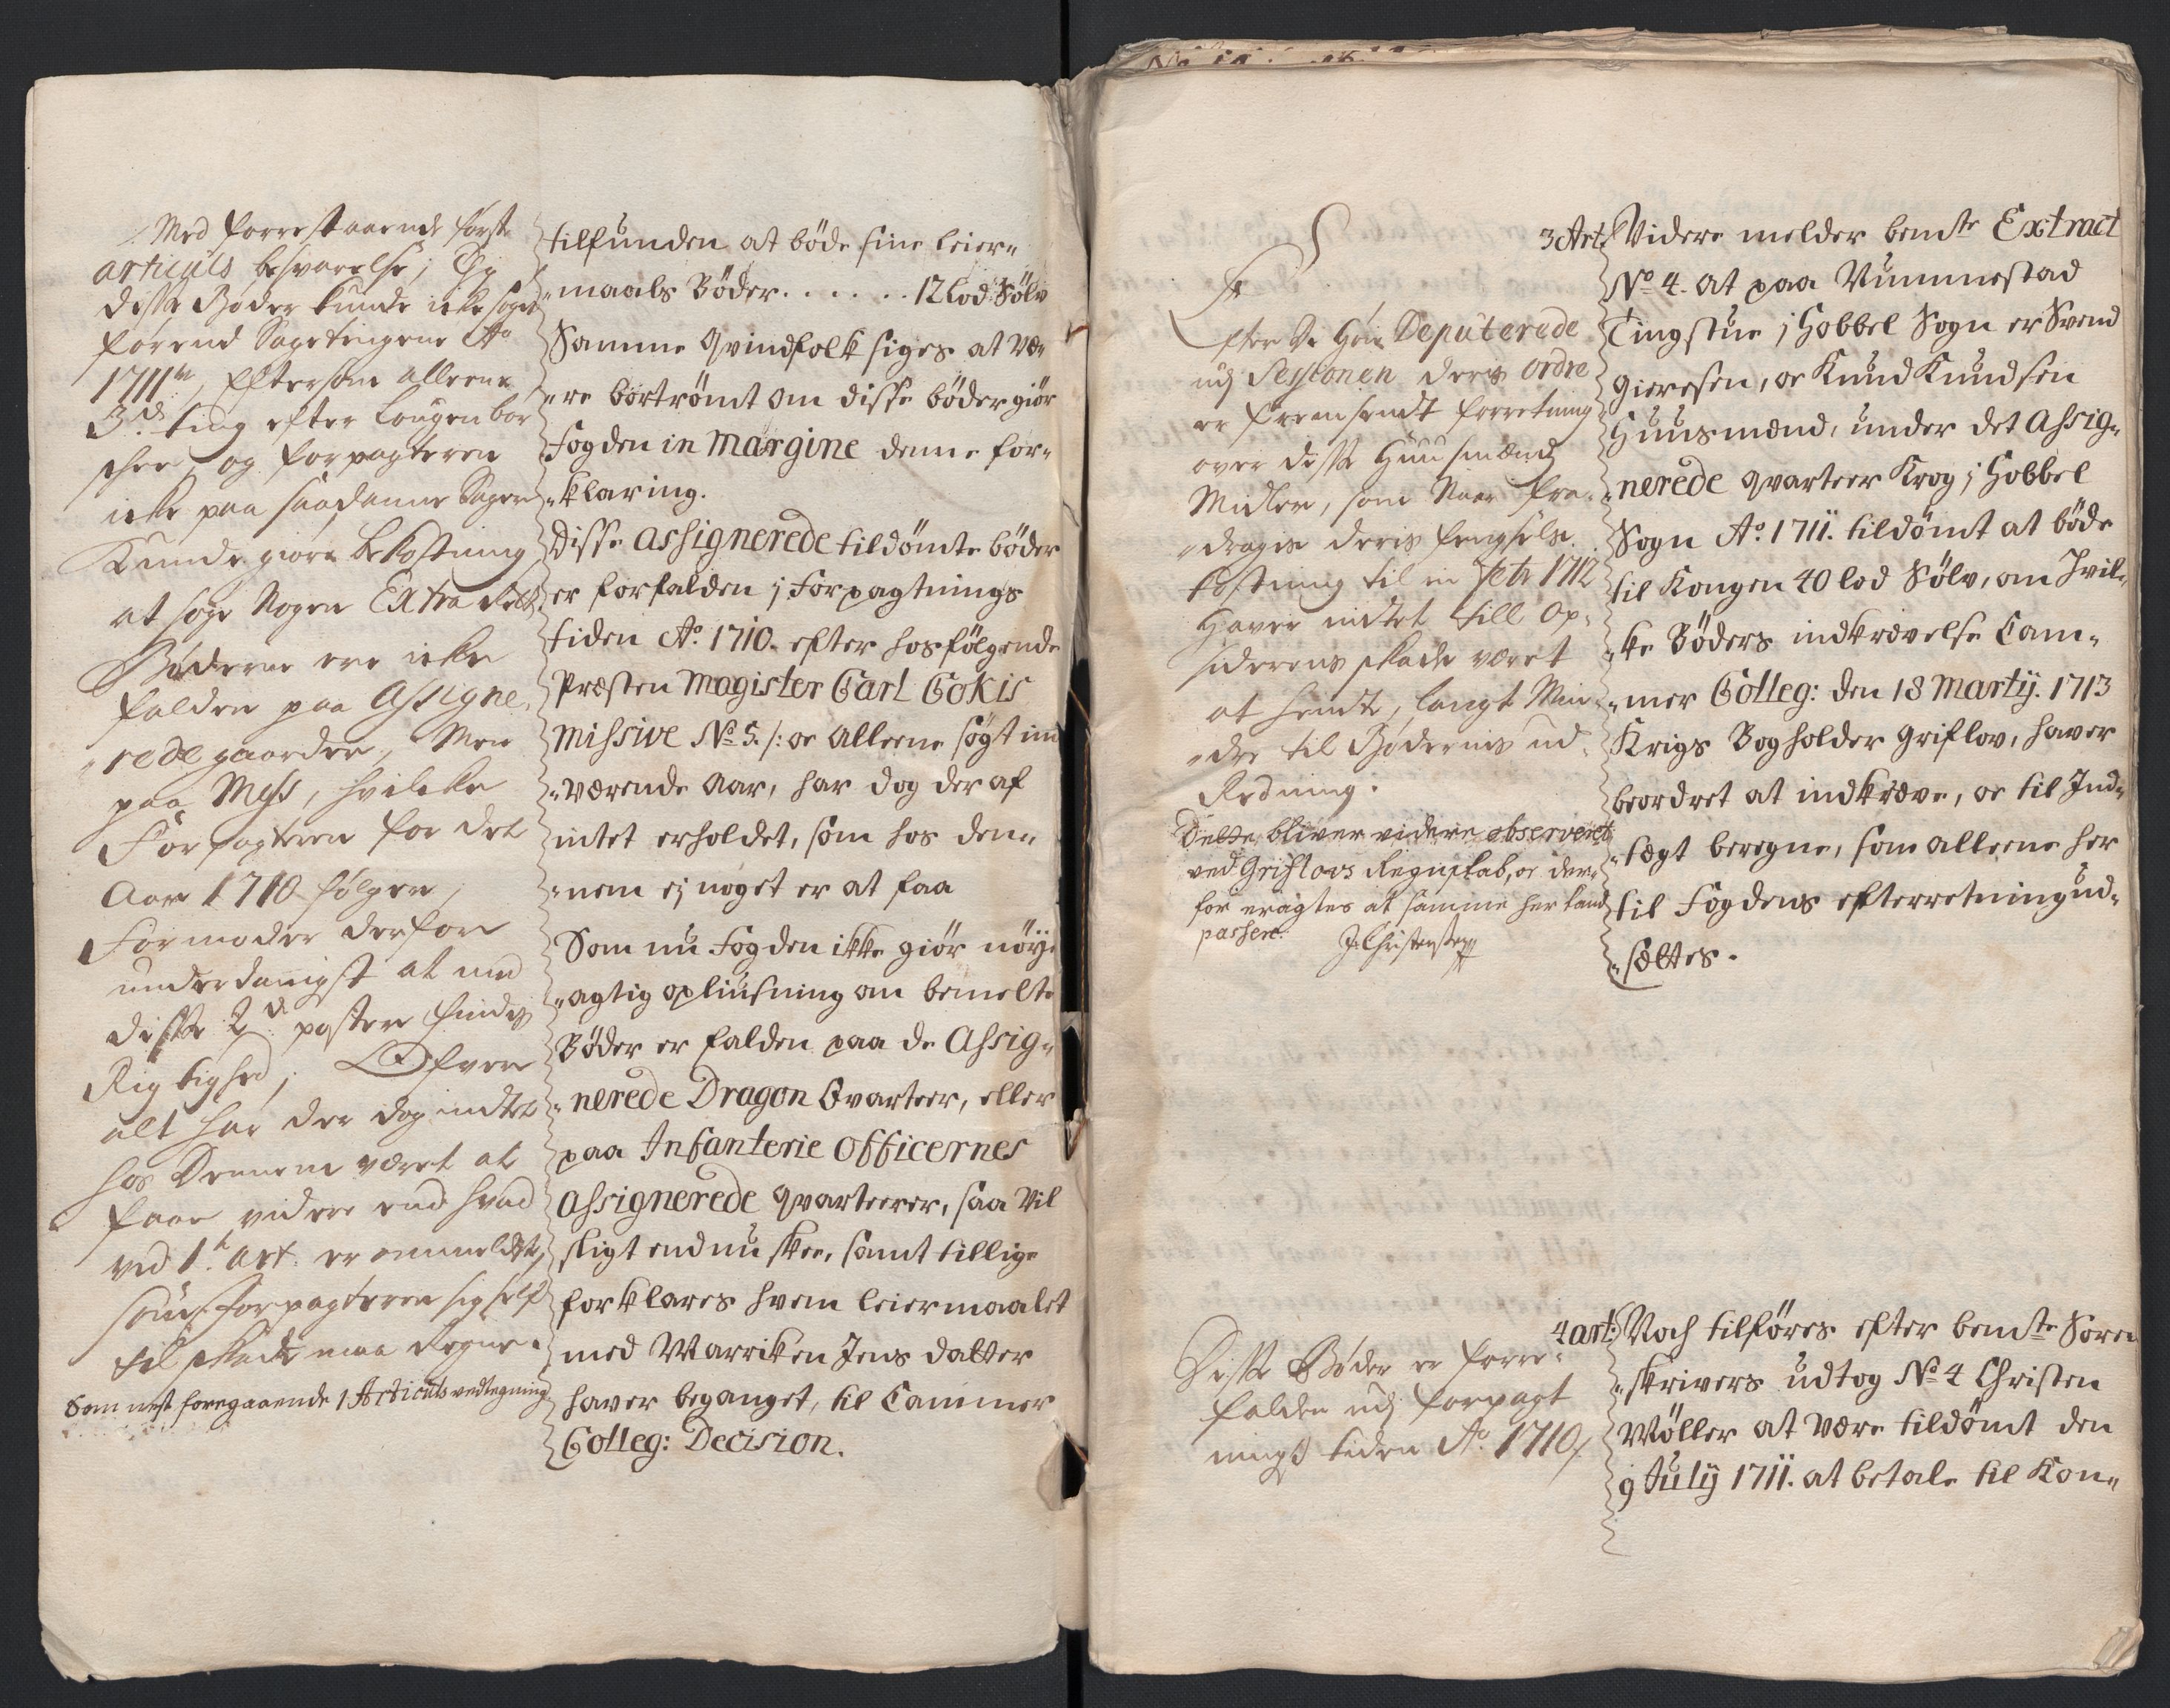 Med forrestaaende først
articuls besvarelse; Og
disse Bøder kunde icke søges
førend Sagetingene Ao
1711, Eftersom alleene
3de ting efter Lougen bør
schee, og forpagteren
icke paa saadanne Sager
Kunde giøre bekostning
at søge Nogen Extra Rett
Bøderne ere icke
falden paa Assigne„
„rede gaarder, Men
paa Moss, hvilcke
Forpagteren for det
Aar 1710 følger,
Formoder derfore
underdanigst at med
disse 2de poster findes
Rigtighed; Ofver
alt har der dog indtet
hos Dennem været at
faae videre end hvad
ved 1te Art: er anmeldet,
som forpagteren sig self
til skade maa Regne.
Som nest foregaaende 1 Articuls vedtegning
tilfunden at bøde sine Leier„
„maals Bøder . . . . . . 12 Lod Sølv
Samme Qvindfolk siges at væ„
„re bortrömt om disse bøder giør
Fogden in Margine denne for„
„klaring.
Disse Assignerede tildömte bøder
er forfalden i Forpagtnings
tiden Ao. 1710. efter hosfölgende
Præsten Magister Carl Gokis
Missive No 5. /: oc alleene søgt in
„værende Aar, har dog der af
intet erholdet, som hos den„
„nem ej noget er at faa
Som nu Fogden ikke giør nöye
„agtig opliusning om bemelte
Bøder er falden paa de Assig„
„nerede Dragon Qvarteer, eller
paa Infanterie Officernes
Assignerede Qvarteerer, saa vil
sligt endnu skee, samt tillige
forklares hvem Leiermaalet
med Marriken Jens datter
haver beganget, til Cammer
Colleg: Decision.
Efter De Høie Deputerede
udj Seysonen deris Ordre
er fremsendt forretning
over disse Huusmænds
Midler, som Naar fra„
„drages deris fengsels
kostning til in Febr 1712
Haver indtet till Op„
siderens skade været
at hendte, langt Min„
„dre til Bødernis ud„
Redning.
Dette bliver videre observeret
ved Griflovs Regnskab, oc der„
for eragtes at samme her kand
passere.
J. Christensen
3 Art: Videre melder bemte Extract
No 4. at paa Vummestad
Tingstue i Hobbel Sogn er Svend
Gieresen, oc Knud Knudsen
Huusmænd, under det Assig„
„nerede Qvarteer Krog i Hobbel
Sogn Ao. 1711. tildömt at böde
til Kongen 40 lod Sølv, om Hvil„
„ke Bøders indkrævelse Cam„
„mer Colleg: den 18 Martij. 1713
Krigs Bogholder Griflov, haver
beordret at indkræve, oc til Ind„
„tægt beregne, som alleene her
til Fogdens efterretning ud„
„sættes.
Disse Bøder er forre„
falden udj forpagt
nings tiden Ao. 1710.
4 art: Noch tilföres efter bemte Soren
„skrivers udtog No 4 Christen
Möller at være tildömt den
9 July 1711. at betale til Kon„